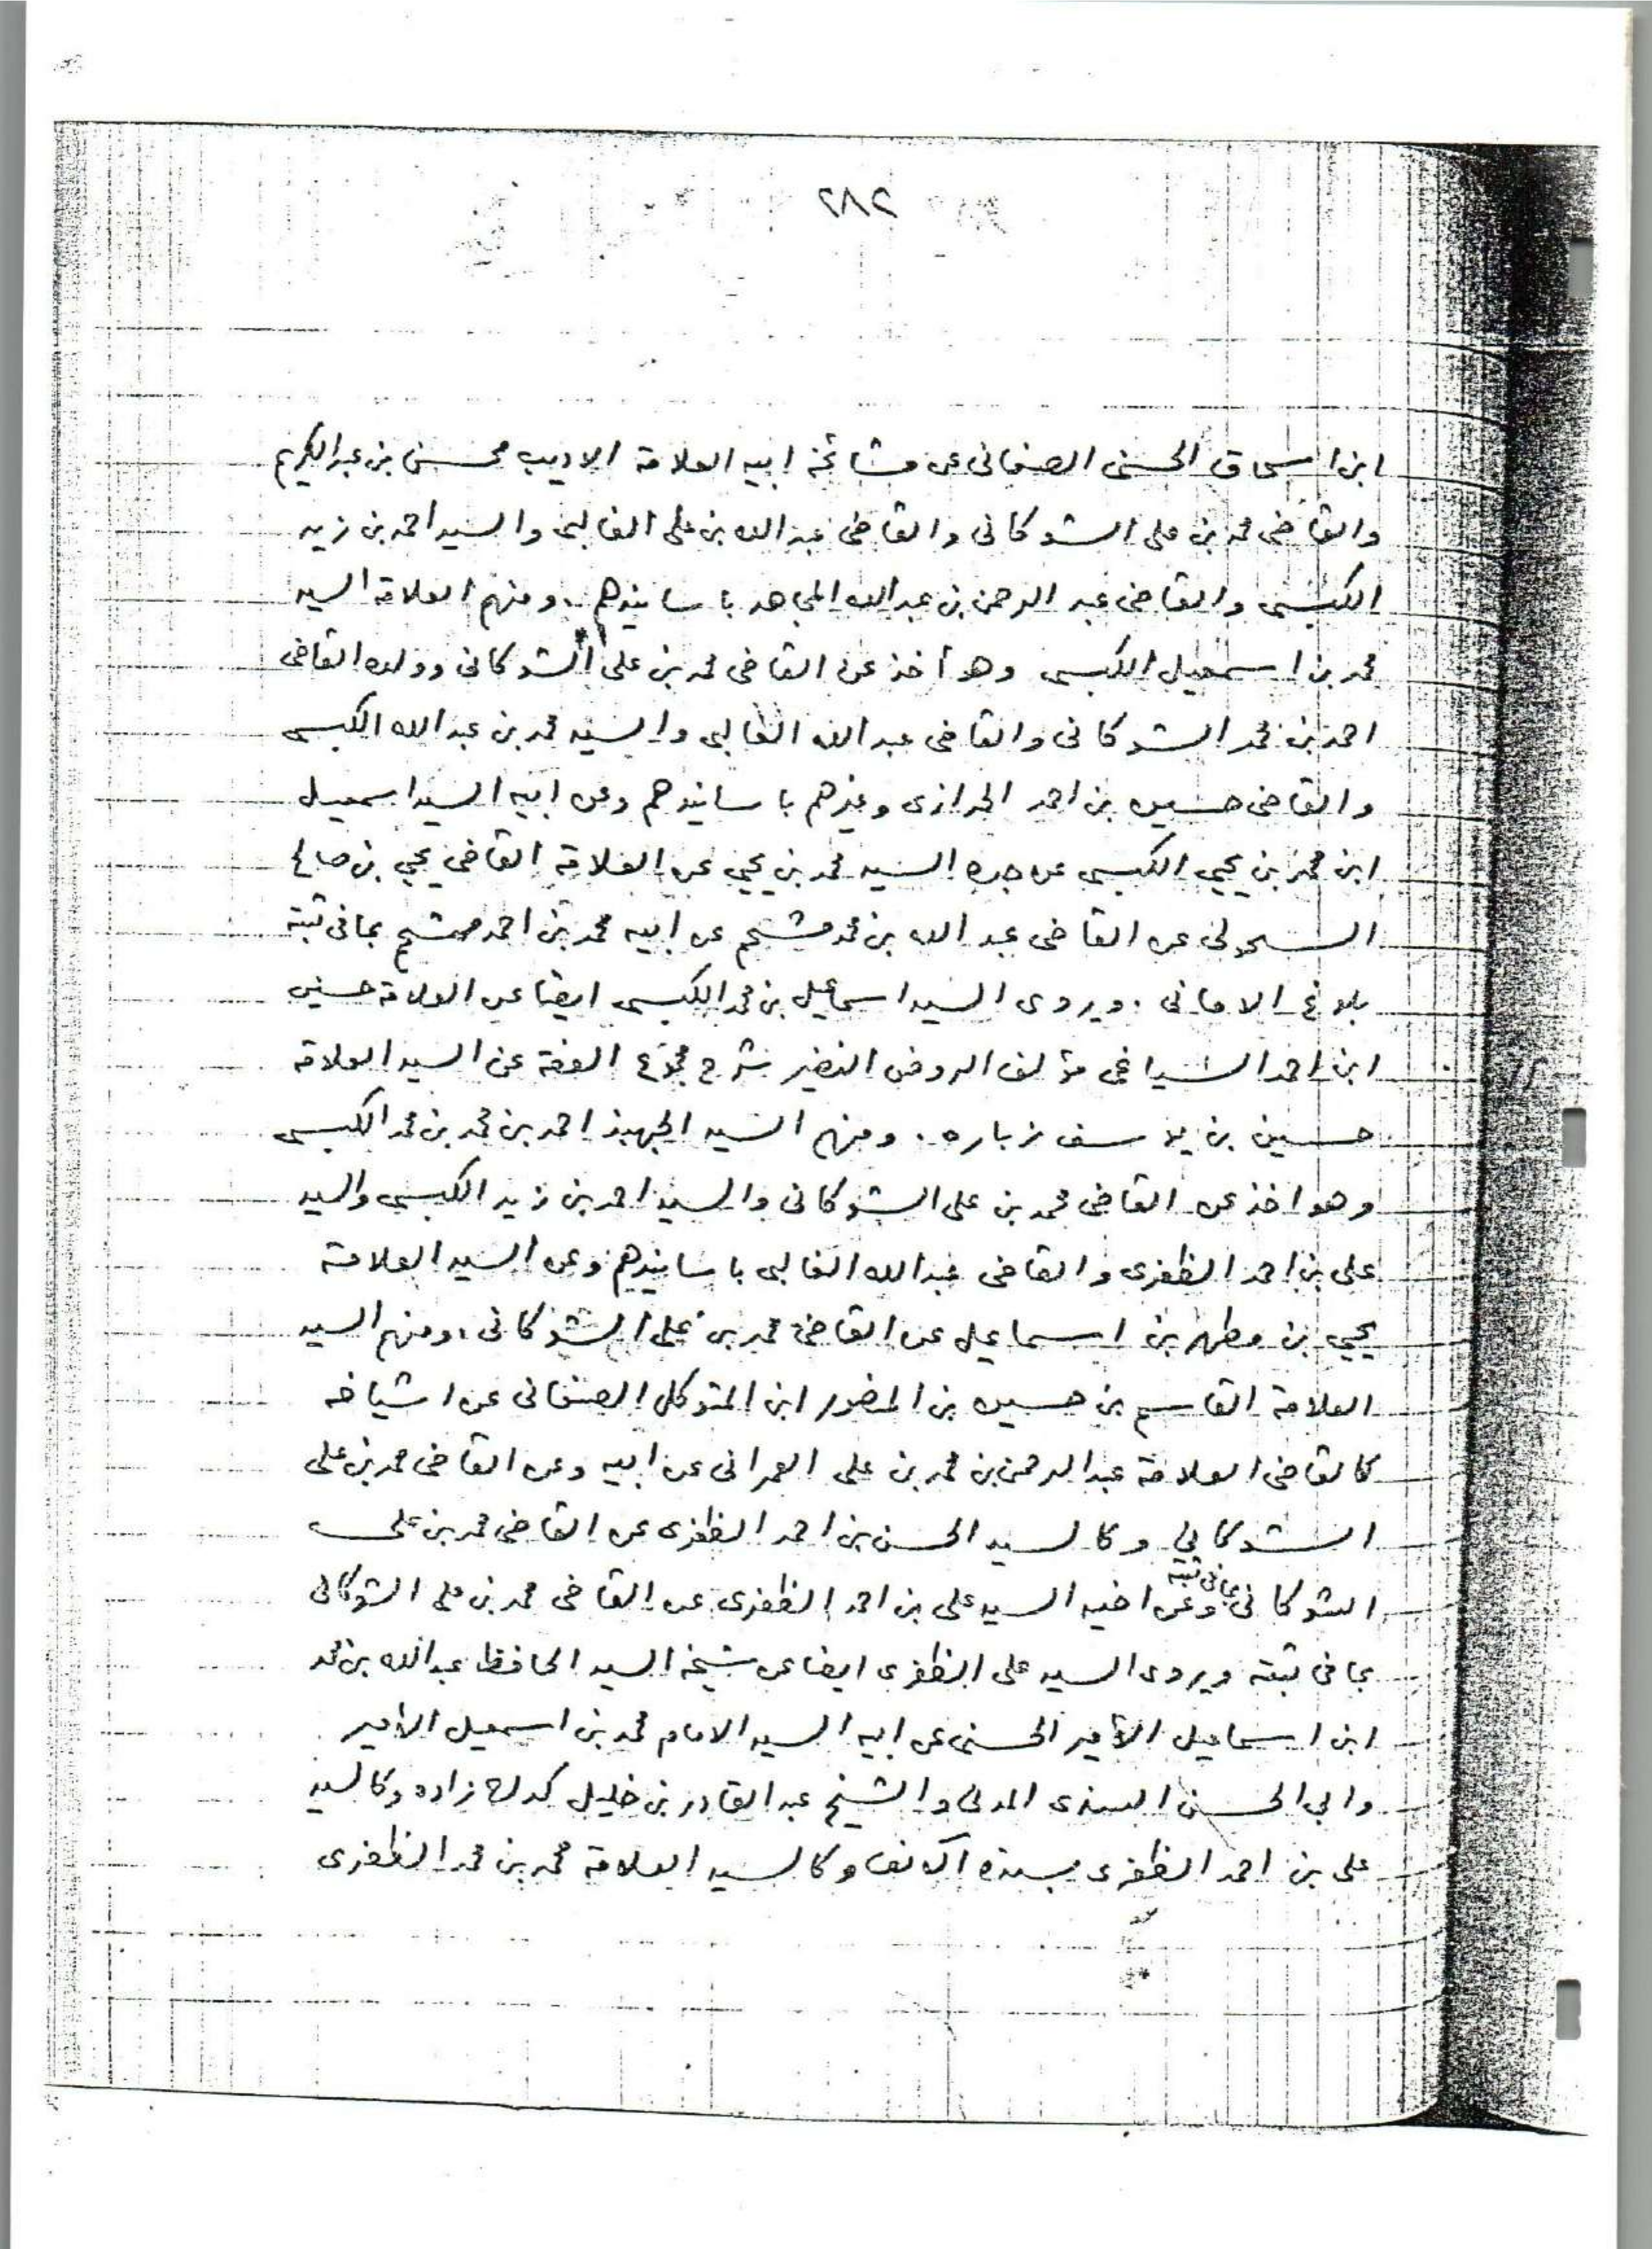 ٢٨٢
ابن اسحاق الحسنى الصنعانى عن مشائخه ابيه العلامة الاديب محسن بن عبدالكريم
والقاضى محمد بن على الشوكانى والقاضى عبدالله بن على الغالبى والسيد احمد بن زيد
الكبسى والقاضى عبد الرحمن بن عبدالله المجاهد باسانيدهم . ومنهم العلامة السيد
محمد بن اسمعيل الكبسى وهو أخذ عن القاضى محمد بن على الشوكانى وولده القاضى
احمد بن محمد الشوكانى والقاضى عبدالله الغالبى والسيد محمد بن عبدالله الكبسى
والقاضى حسين بن احمد الحرازى وغيرهم باسانيدهم وعن ابيه السيد اسمعيل
ابن محمد بن يحيى الكبسى عن جده السيد محمد بن يحيى عن العلامة القاضى يحيى بن صالح
السحولى عن القاضى عبد الله بن محمد مشحم عن ابيه محمد بن احمد مشحم بما فى ثبته
بلوغ الامانى . ويروى السيد اسماعيل بن محمد الكبسى ايضا عن العلامة حسين
ابن احمد السياغى مؤلف الروض النضير شرح مجموع الفقه عن السيد العلامة
حسين بن يوسف زباره . ومنهم السيد الجهبذ احمد بن محمد بن محمد الكبسى
وهو اخذ عن القاضى محمد بن على الشوكانى والسيد احمد بن زيد الكبسى والسيد
على بن احمد الظفرى والقاضى عبدالله الغالبى باسانيدهم وعن السيد العلامة
يحيى بن مطهر بن اسماعيل عن القاضى محمد بن على الشوكانى ، ومنهم السيد
العلامة القاسم بن حسين بن المنصور ابن المتوكل الصنعانى عن اشياخه
كالقاضى العلامة عبدالرحمن بن محمد بن على العمرانى عن ابيه وعن القاضى محمد بن على
الشوكانى وكالسيد الحسن بن احمد الظفرى عن القاضى محمد بن على
الشوكانى بما فى ثبته وعن اخيه السيد على بن احمد الظفرى عن القاضى محمد بن على الشوكانى
بما فى ثبته ويروى السيد على الظفرى ايضا عن شيخه السيد الحافظ عبدالله بن محمد
ابن اسماعيل الأمير الحسنى عن ابيه السيد الامام محمد بن اسمعيل الأمير
وابى الحسن السندى المدنى والشيخ عبد القادر بن خليل كدك زاده وكالسيد
على بن احمد الظفرى بسنده الآنف وكالسيد العلامة محمد بن محمد الظفرى